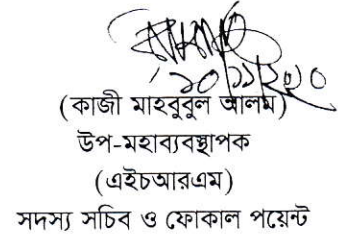 (কাজী মাহবুবুল আলম)
উপ-মহাব্যবস্থাপক
(এইচআরএম)
সদস্য সচিব ও ফোকাল পয়েন্ট